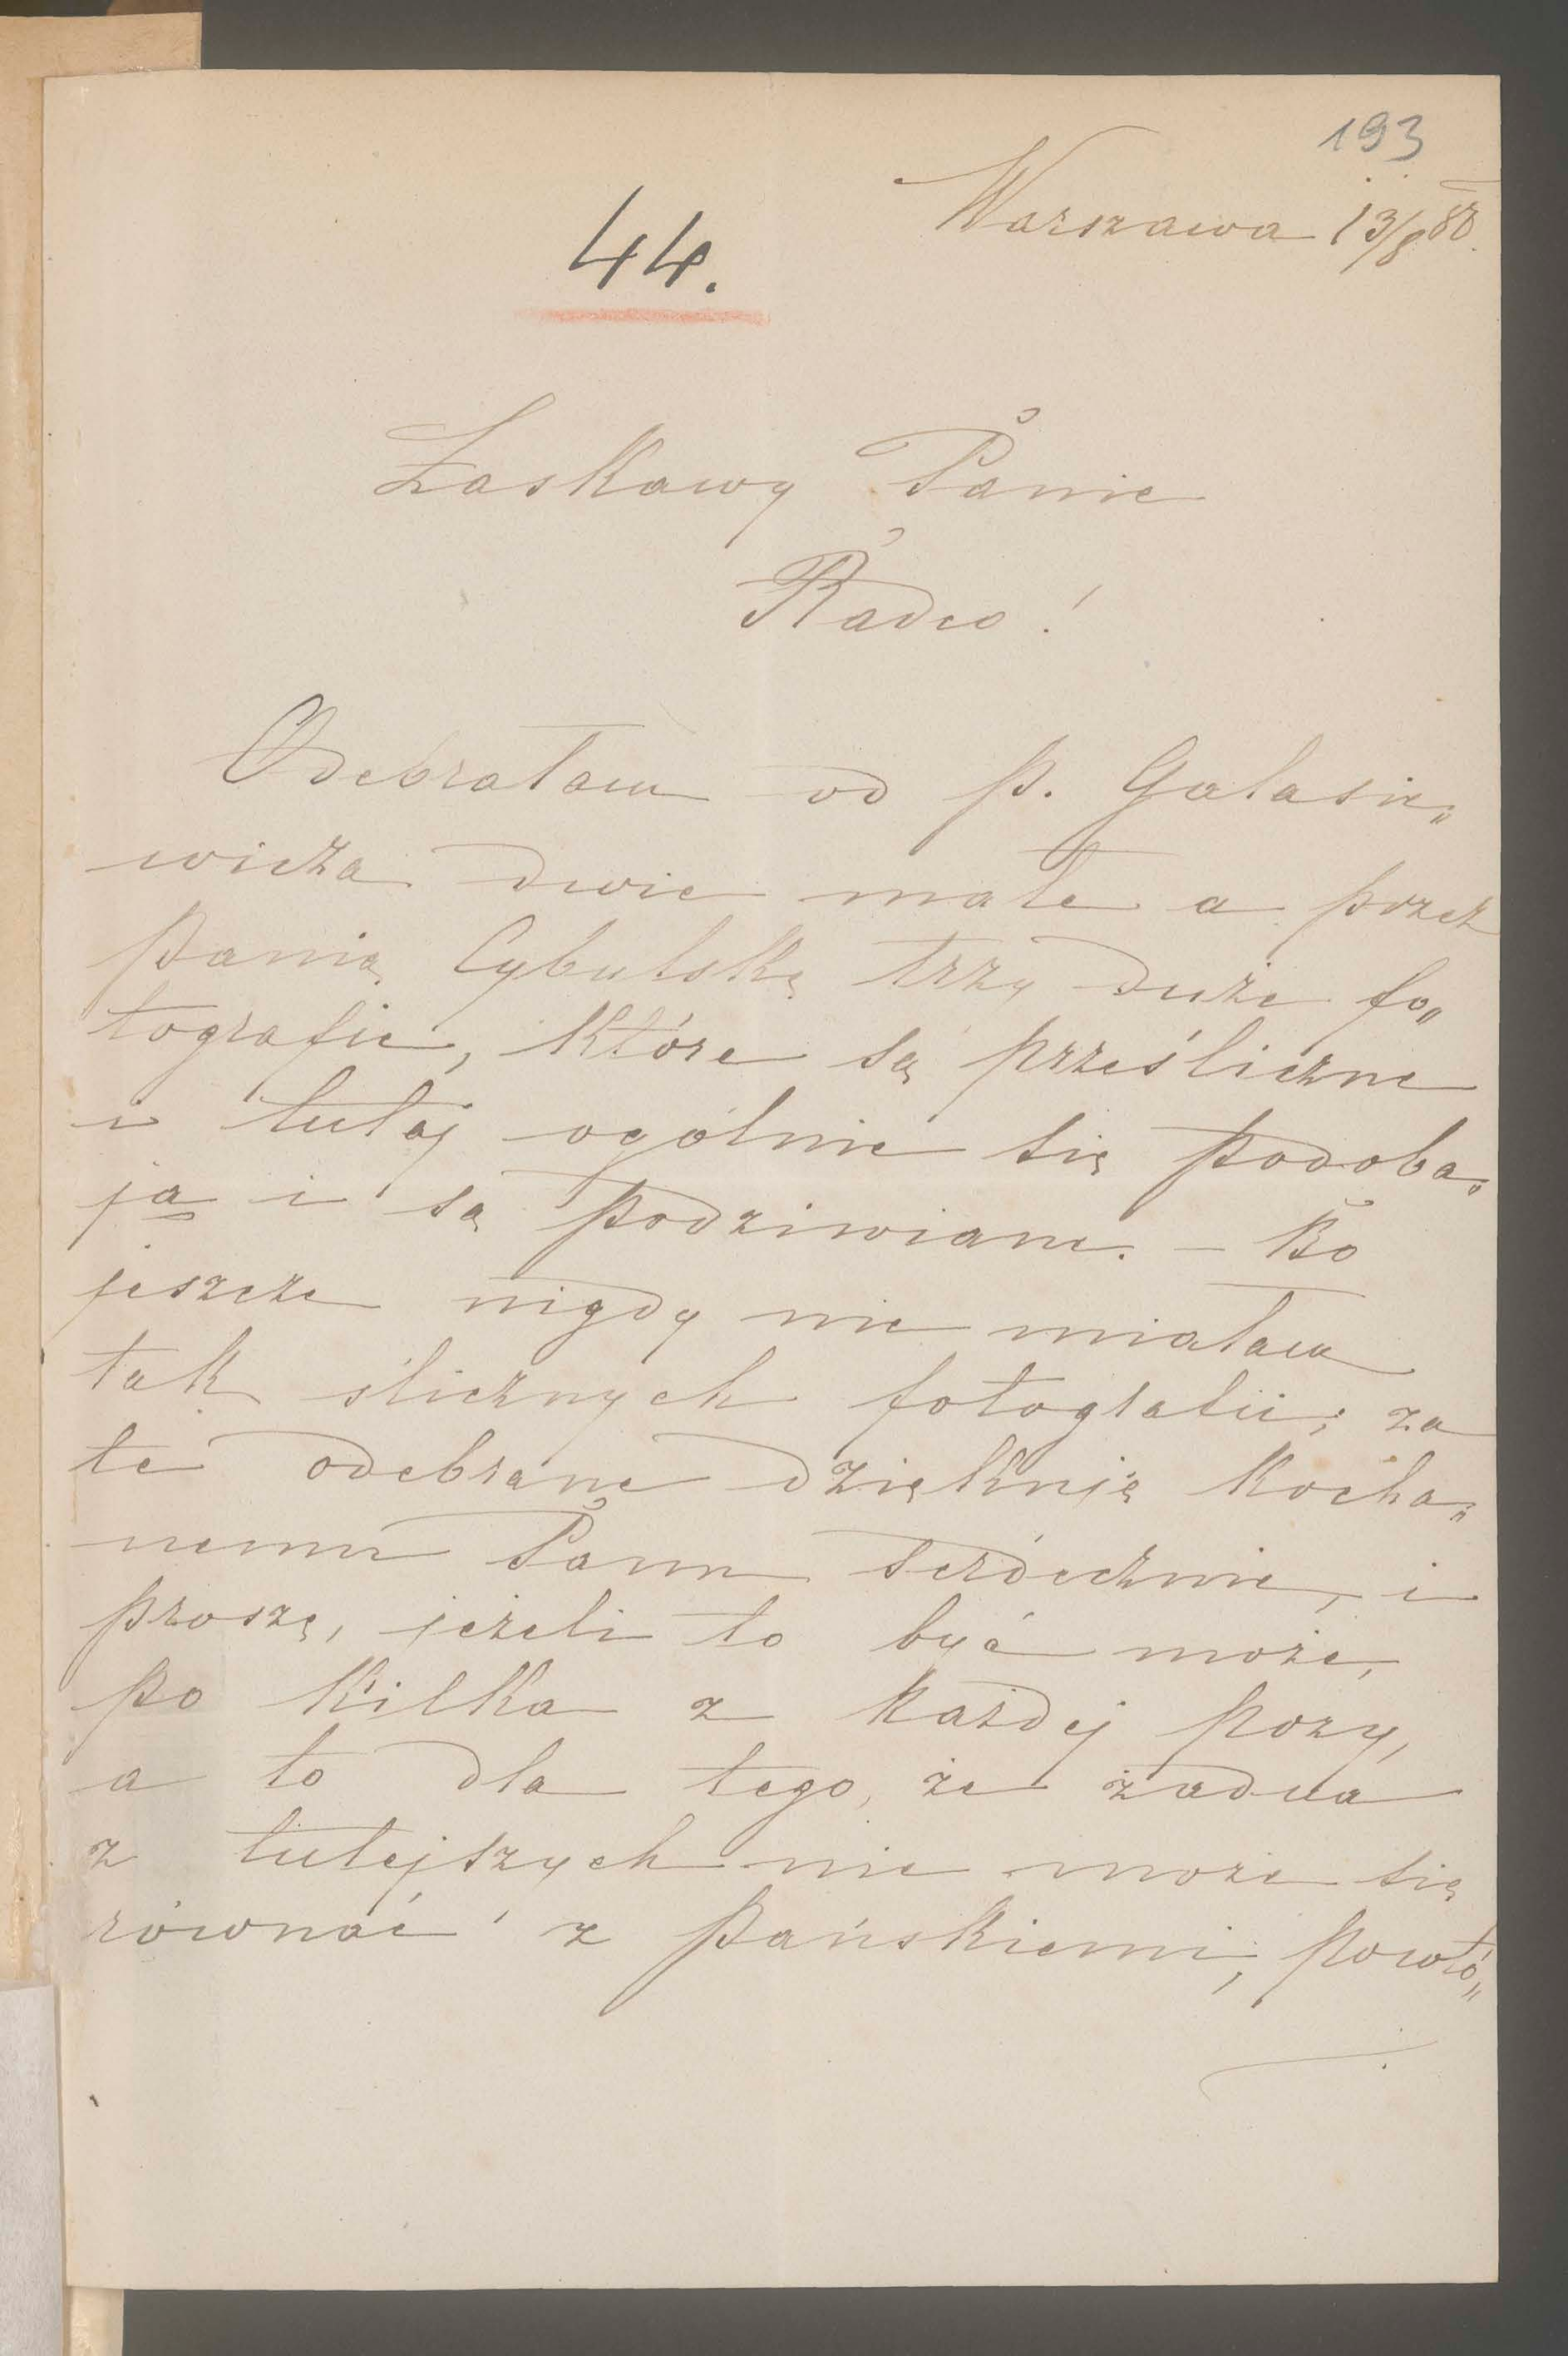 193
Warszawa 13/8 88.
44.
Łaskawy Panie
Radco!
Odebrałam od p. Galasie„
wicza dwie małe a przez
Panią Cybulską trzy duże fo„
tografie, które są prześliczne
i tutaj ogólnie się podoba„
ją i są podziwiane. – Bo
jeszcze nigdy nie miałam
tak ślicznych fotografii; za
te odebrane dziękuję Kocha„
nemu Panu serdecznie, i
proszę, jeżeli to być może,
po kilka z każdej pozy,
a to dla tego, że żadna
z tutejszych nie może się
równać z Pańskiemi, powtó„